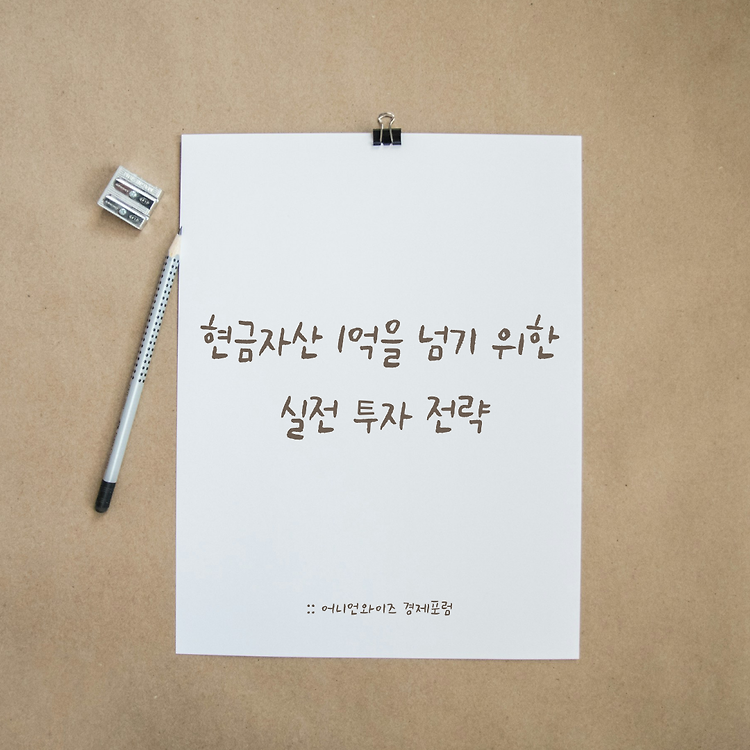 현금자산 1억을 넘기 위한
실전 투자 전략
:: 어니언와이즈 경제포럼